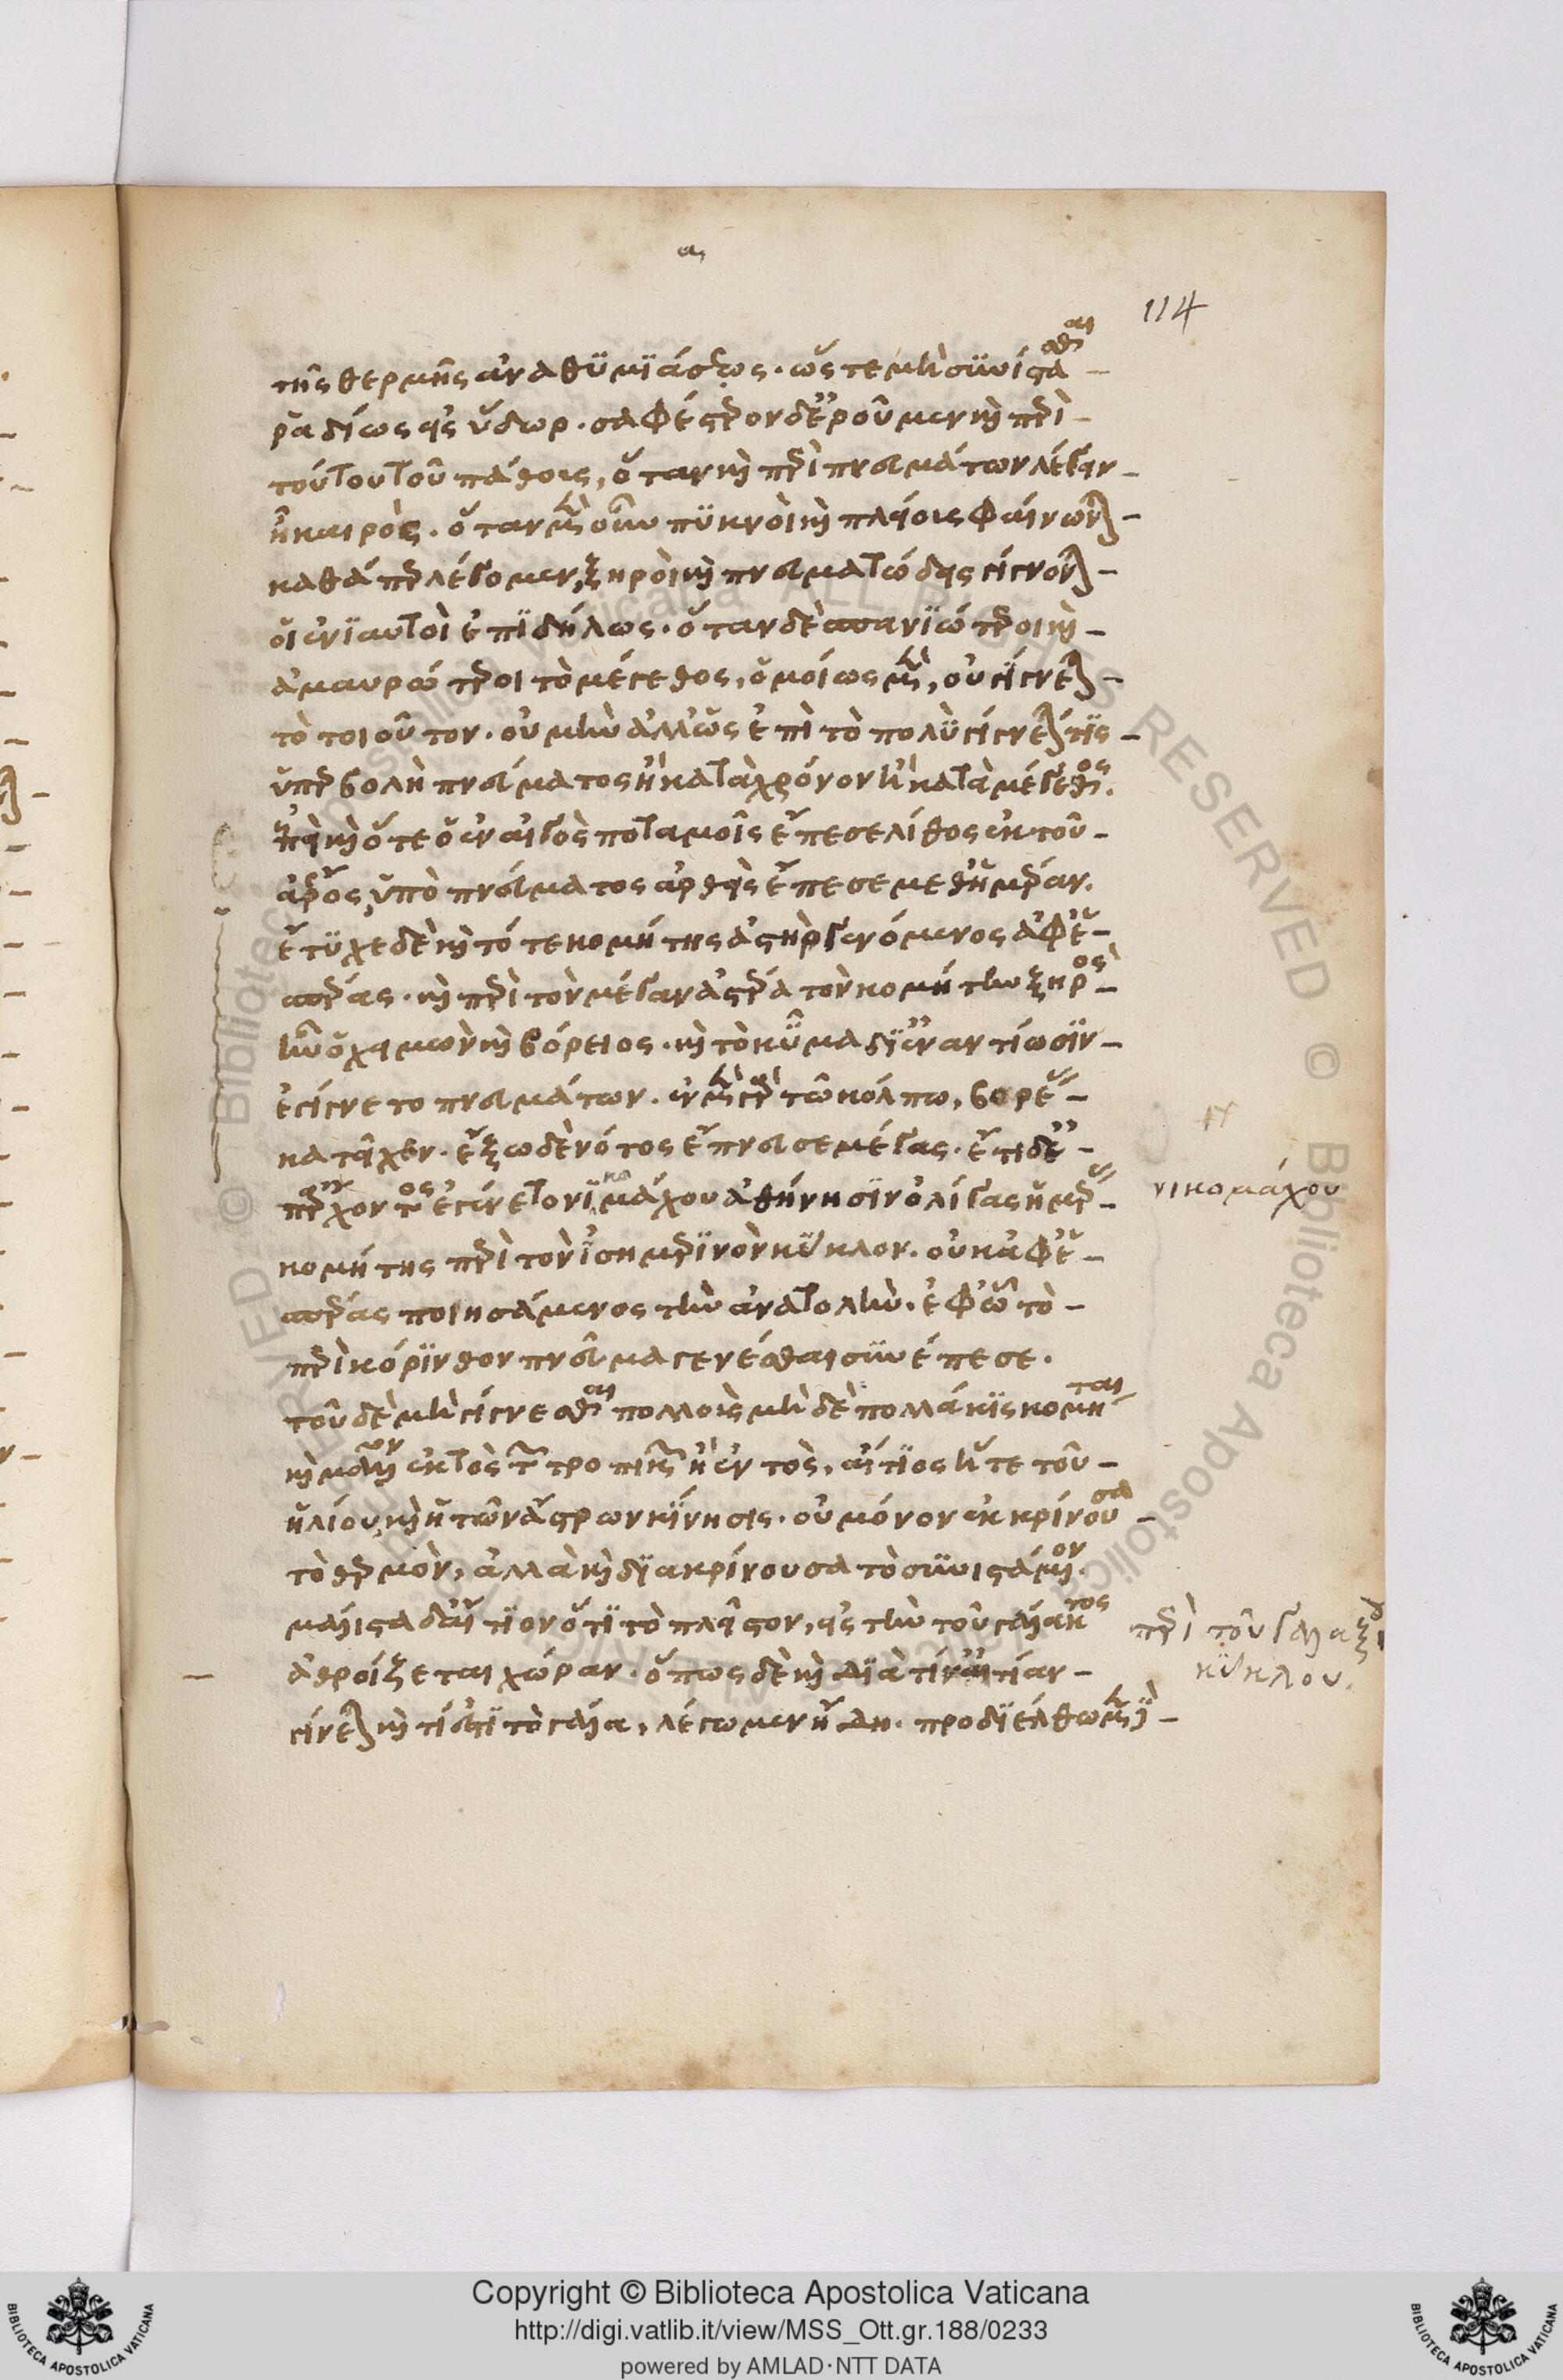 α,
114
τῆς θερμῆς ἀναθυμιάσεως· ὥστε μὴ συνίστασθαι
ῥαδίως εἰς ὕδωρ. σαφέστερον δ' ἐροῦμεν καὶ περὶ
τούτου τοῦ πάθους, ὅταν καὶ περὶ πνευμάτων λέγειν
ἦ καιρὸς. ὅταν μὲν οὖν πυκνοὶ καὶ πλείους φαίνωνται
καθάπερ λέγομεν, ξηροὶ καὶ πνευματώδεις γίγνονται
οἱ ἐνιαυτοὶ ἐπιδήλως· ὅταν δὲ σπανιώτεροι καὶ
ἀμαυρώτεροι τὸ μέγεθος, ὁμοίως μὲν, οὐ γίγνεται
τὸ τοιοῦτον. οὐ μὴν ἀλλ' ὡς ἐπὶ τὸ πολὺ γίγνεταί τις
ὑπερβολὴ πνεύματος ἢ κατὰ χρόνον ἢ κατὰ μέγεθος.
ἐπεὶ καὶ ὅτε ὁ ἐν αἰγὸς ποταμοῖς ἔπεσε λίθος ἐκ τοῦ
ἀέρος, ὑπὸ πνεύματος ἀρθεὶς ἔπεσε μεθ' ἡμέραν.
ἔτυχε δὲ καὶ τότε κομήτης ἀστὴρ γενόμενος ἀφ' ἑ
σπέρας. καὶ περὶ τὸν μέγαν ἀστέρα τὸν κομήτην ξηρὸς
ἦν ὁ χειμὼν καὶ βόρειος. καὶ τὸ κῦμα δι' ἐναντίωσιν
ἐγίγνετο πνευμάτων. ἐν μὲν γὰρ τῶ κόλπω, βορέας
κατεῖχεν. ἔξω δὲ νότος ἔπνευσε μέγας. ἔτι δ' ἐ
π' ἄρχοντος ἐγένετο νικομάχου ἀθήνησιν ὀλίγας ἡμέρας
κομήτης περὶ τὸν ἰσημερινὸν κύκλον. οὐκ ἀφ' ἑ
σπέρας ποιησάμενος τὴν ἀνατολὴν. ἐφ' ὧ τὸ
περὶ κόρινθον πνεῦμα γενέσθαι συνέπεσε.
τοῦ δὲ μὴ γίγνεσθαι πολλοὺς μὴ δὲ πολλάκις κομήτας
καὶ μᾶλλον ἐκτὸς τῶν τροπικῶν ἢ ἐντὸς, αἴτιος ἥ τε τοῦ
ἡλίου καὶ ἡ τῶν ἄστρων κίνησις. οὐ μόνον ἐκκρίνουσα
τὸ θερμὸν, ἀλλὰ καὶ διακρίνουσα τὸ συνιστάμενον.
μάλιστα δ' αἴτιον ὅτι τὸ πλεῖστον, εἰς τὴν τοῦ γάλακτος
ἀθροίζεται χώραν. ὅπως δὲ καὶ διὰ τίν' αἰτίαν
γίνεται καὶ τί ἐστι τὸ γάλα, λέγωμεν ἤδη. προδιέλθωμεν
νικομάχου
περὶ τοῦ γαλαξίου
κύκλου.
Copyright © Biblioteca Apostolica Vaticana
http://digi.vatlib.it/view/MSS_Ott.gr.188/0233
powered by AMLAD·NTT DATA